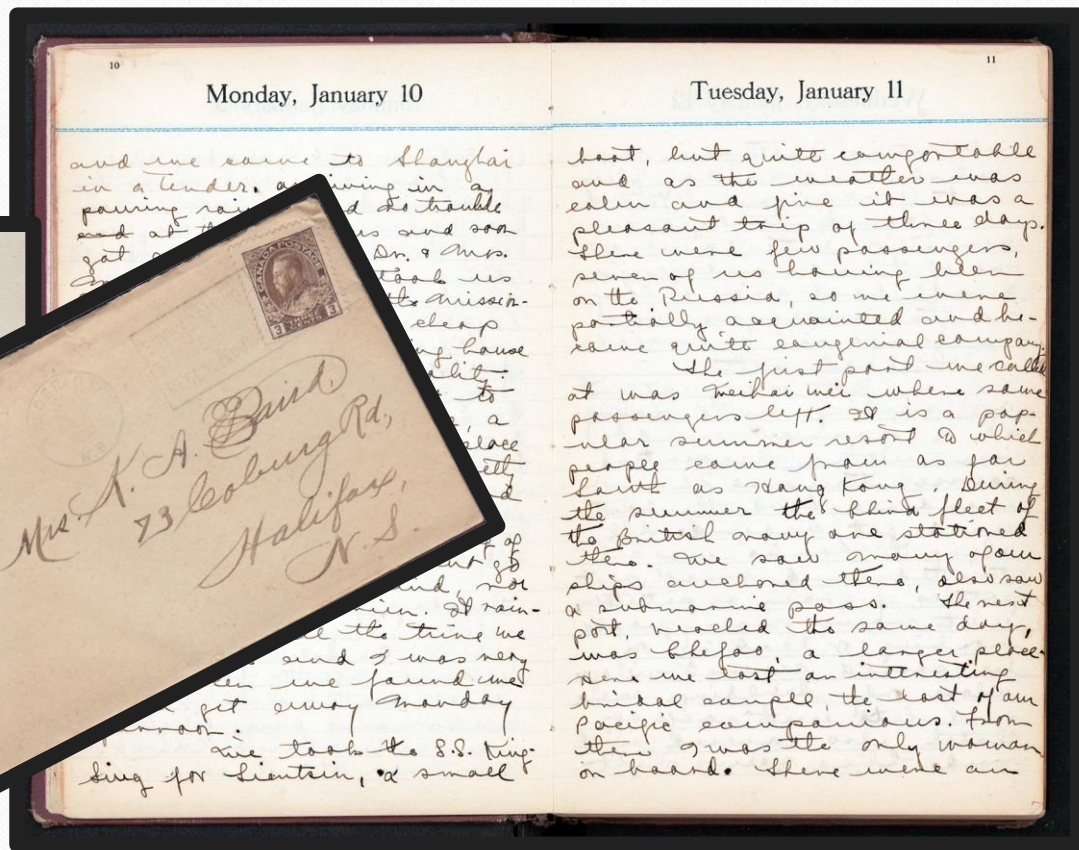 10
Monday, January 10
and we came to Shanghai
in a tender, arriving in a
pouring rain. d no trouble
at th us and soon
got Dr. & Mrs.
took us
the mission-
cheap
ng house
to
, a
place
nd
of
go
nd, nor
. It rain-
the time we
and I was very
en we found we
get away Monday
noon.
We took the S.S. King-
Sing for Tientsin, a small
11
Tuesday, January 11
boat, but quite comfortable
and as the weather was
calm and fine it was a
pleasant trip of three days.
There were few passengers,
seven of us having been
on the Russia, so we were
partially acquainted and be-
came quite congenial company.
The first port we called
at was Weihaiwei where some
passengers left. It is a pop-
ular summer resort to which
people come from as far
South as Hong Kong. During
the summer the China fleet of
the British navy are stationed
there. We saw many of our
ships anchored there, also saw
a submarine pass. The next
port, reached the same day,
was Chefoo, a larger place.
Here we lost an interesting
bridal couple, the last of our
Pacific companions. From
then I was the only woman
on board. There were an
CANADA POSTAGE
3 3
CENTS
Mrs. K. A. Baird
73 Coburg Rd,
Halifax,
N.S.